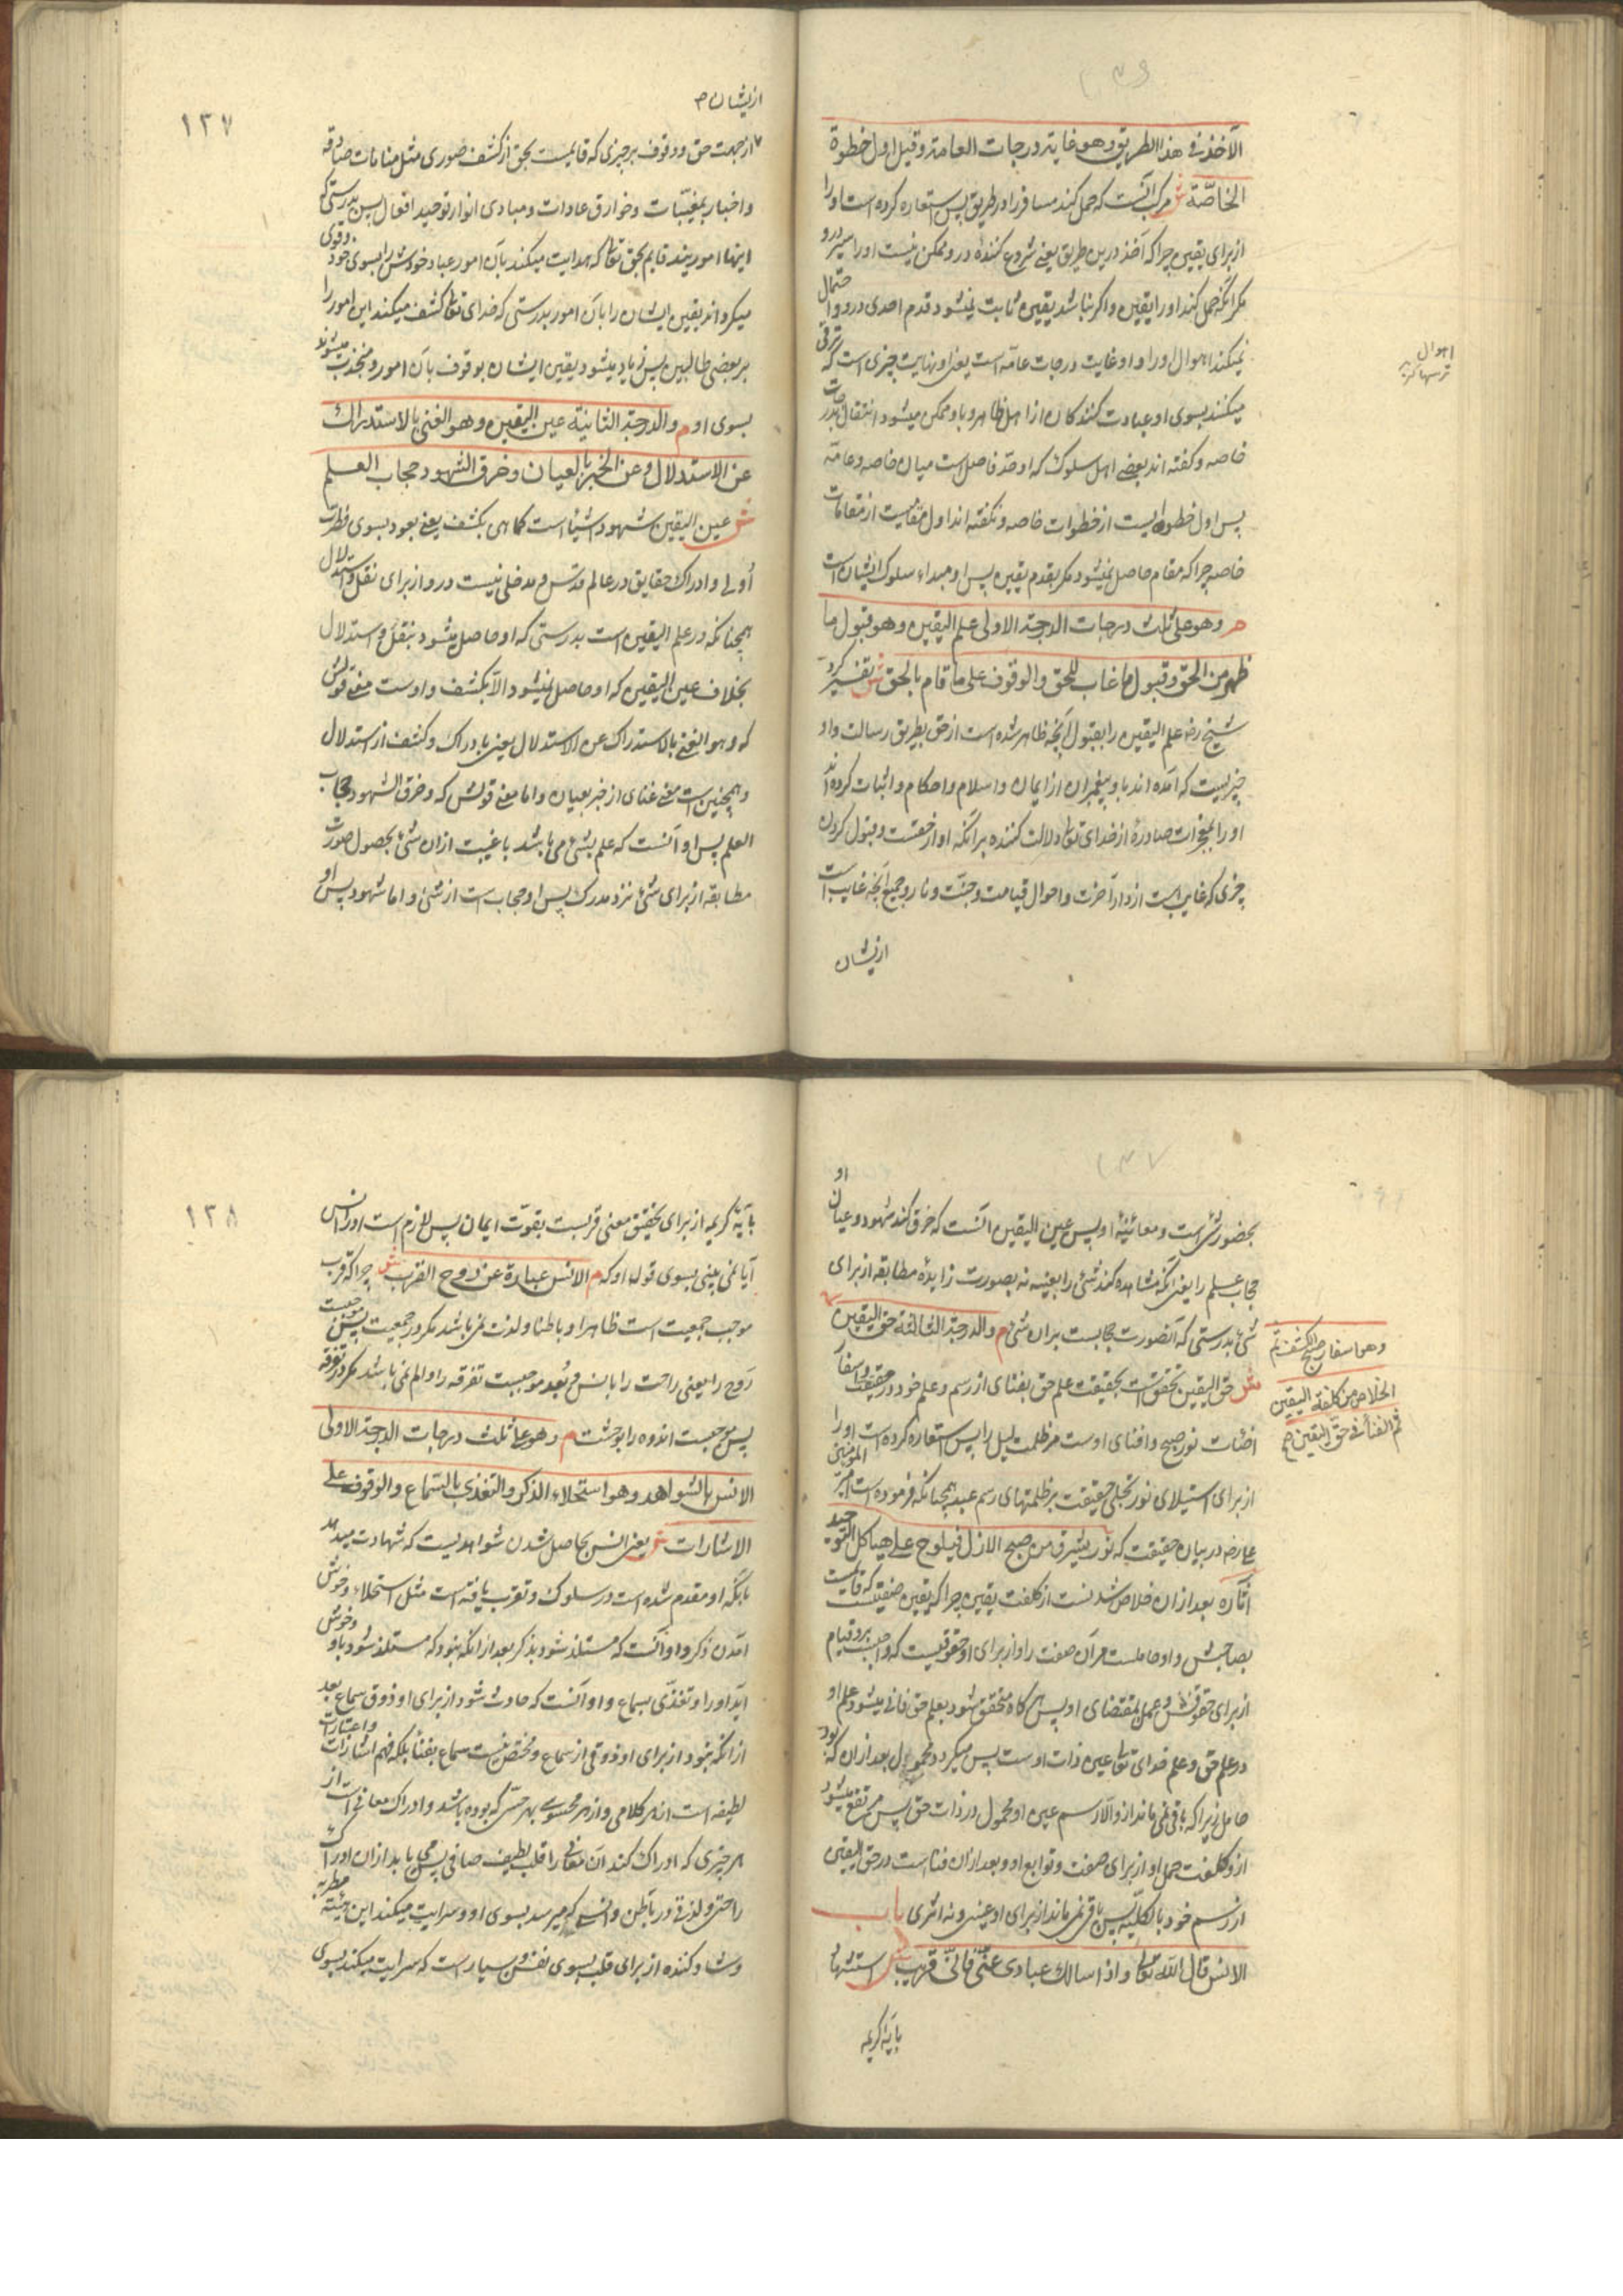 الآخذ فی هذا الطریق وهو غایة درجات العامة وقیل اول خطوة
الخاصّة ش مرکب آنست که حمل کند مسافر را در طریق پس استعاره کرده است او را
از برای یقین چراکه آخذ درین طریق یعنی شروع کننده درو ممکن نیست او را سیر درو
مکر آنکه حمل کند او را یقین و اکر نباشد یقین ثابت نمیشود قدم احدی درو و احتمال
نمیکند اهوال او را و او غایت درجات عامّه است یعنی او نهایت چیزی است که ترقی
میکنند بسوی او عبادت کنندکان از اهل ظاهر و باو ممکن میشود انتقال بدرجات
خاصه و کفته اند بعضی اهل سلوک که او حدّ فاصل است میان خاصه و عامّه
پس اول خطوه ایست از خطوات خاصه و نکفته اند اول مقامیست از مقامات
خاصه چراکه مقام حاصل نمیشود مکر بقدم یقین پس او مبداء سلوک ایشان است
م وهو علی ثلث درجات الدرجة الاولی علم الیقین وهو قبول ما
ظهر من الحق وقبول ما غاب للحق والوقوف علی ما قام بالحق ش تفسیر کرد
شیخ رض علم الیقین را بقبول آنچه ظاهر شده است از حق بطریق رسالت و او
چیزیست که آمده اند باو پیغمبران از ایمان و اسلام و احکام و اثبات کرده اند
او را بمعجزات صادرهٔ از خدای تعالی دلالت کننده برآنکه او از حقست و قبول کردن
چیزی که غایب است از دار آخرت و احوال قیامت و جنّت و نار و جمیع آنچه غایب است
از ایشان
اهوال
ترسها
١٣٧
از ایشان
از جهت حق و وقوف بر چیزی که قایمست بحق از کشف صوری مثل منامات صادقه
و اخبار بمغیّبات و خوارق عادات و مبادی انوار توحید افعال پس بدرستی که
اینها امورند قایم بحق تعالی که هدایت میکند بآن امور عباد خودش را بسوی خود و قوی
میکرداند یقین ایشان را بآن امور بدرستی که خدای تعالی کشف میکند این امور را
بر بعضی طالبین پس زیاد میشود یقین ایشان بوقوف بآن امور و منجذب میشوند
بسوی او م والدرجة الثانیة عین الیقین وهو الغنی بالاستدراک
عن الاستدلال وعن الخبر بالعیان وخرق الشهود حجاب العلم
ش عین الیقین شهود اشیا است کما هی بکشف یعنی بعود بسوی فطرت
اُولی و ادراک حقایق در عالم قدس و مدخلی نیست درو از برای نقل و استدلال
همچنانکه در علم الیقین است بدرستی که او حاصل میشود بنقل و استدلال
بخلاف عین الیقین که او حاصل نمیشود الّا بکشف و اوست معنی قولش
که وهو الغنی بالاستدراک عن الاستدلال یعنی بادراک و کشف از استدلال
و همچنین است معنی غنای از خبر بعیان و اما معنی قولش که وخرق الشهود حجاب
العلم پس او آنست که علم بشیٔ می باشد با غیبت از ان شیٔ بحصول صورت
مطابقه از برای شیٔ نزد مدرک پس او حجاب است از شیٔ و اما شهود پس او
او
بحضور شیٔ است و معائنهٔ او پس عین الیقین آنست که خرق کند شهود و عیان
حجاب علم را یعنی آنکه مشاهده کند شیٔ را بعینه نه بصورت زایدهٔ مطابقه از برای
شیٔ بدرستی که آنصورت حجابست بر ان شیٔ م والدرجة الثالثة حق الیقین
ش حق الیقین تحققست بحقیقت علم حق بفنای از رسم و علم خود در حقیقت و اسفار
اضائت نور صبح و افنای اوست مر ظلمت لیل را پس استعاره کرده است او را
از برای استیلای نور تجلی حقیقت بر ظلمتهای رسم عبد همچنانکه فرموده است امیر المؤمنین
علی رض در بیان حقیقت که نور یشرق من صبح الازل فیلوح علی هیاکل التوحید
آثاره بعد ازان خلاص شدنست از کلفت یقین چراکه یقین صفتیست که قایمست
بصاحبش و او حاملست مر آن صفت را و از برای او حقوقیست که واجبست برو قیام
از برای حقوقش و عمل بمقتضای او پس هرکاه متحقق شود بعلم حق فانی میشود علم او
در علم حق و علم خدای تعالی عین ذات اوست پس میکردد محمول بعد ازان که بود
حامل زیراکه باقی نمی ماند از و الّا رسم عین او محمول در ذات حق پس مرتفع میشود
از و کلفت حمل او از برای صفت و توابع او و بعد ازان فنا است در حق الیقین
از رسم خود بالکلیه پس باقی نمی ماند از برای او عینی و نه اثری باب
الانس قال الله تعالی واذا سالک عبادی عنّی فانّی قریب ش استشهاد
بآیهٔ کریمه
وهو اسفار صبح الکشف ثم
الخلاص من کلفة الیقین
ثم الفناء فی حق الیقین صح
١٣٨
بآیهٔ کریمه از برای تحقیق معنی قربست بقوّت ایمان پس لازم است او را انس
آیا نمی بینی بسوی قوله او که م الانس عبارة عن روح القرب ش چراکه قرب
موجب جمعیت است ظاهرا و باطنا و لذت نمی باشد مکر در جمعیت پس موجبست
رَوح را یعنی راحت را با انس و بُعد موجبست تفرقه را و الم نمی باشد مکر در تفرقه
پس موجبست اندوه را بوحشت م وهو علی ثلث درجات الدرجة الاولی
الانس بالشواهد وهو استحلاء الذکر والتغذی بالسماع والوقوف علی
الاشارات ش یعنی انس بحاصل شدن شواهدیست که شهادت میدهد
بآنکه او مقدم شده است در سلوک و تقرب یافته است مثل استحلاء و خوش
آمدن ذکر و او آنست که مستلذ شود بذکر بعد از انکه نبود که مستلذ شود باو و خوش
آید او را و تغذّی بسماع و او آنست که حادث شود از برای او ذوق سماع بعد
از آنکه نبود از برای او ذوقی از سماع و مختص نیست سماع بغنأ بلکه فهم اشارات و اعتبارات
لطیفه است از هر کلامی و از هر محسوسی بهر حسّی که بوده باشد و ادراک معانی است از
هر چیزی که ادراک کند آن معانی را قلب لطیف صافی پس می یابد ازان ادراک
راحتی و لذتی در باطن و انسی که میرسد بسوی او و سرایت میکند این هیئته مطربه
و شاد کننده از برای قلب بسوی نفس و بسیار است که سرایت میکند بسوی